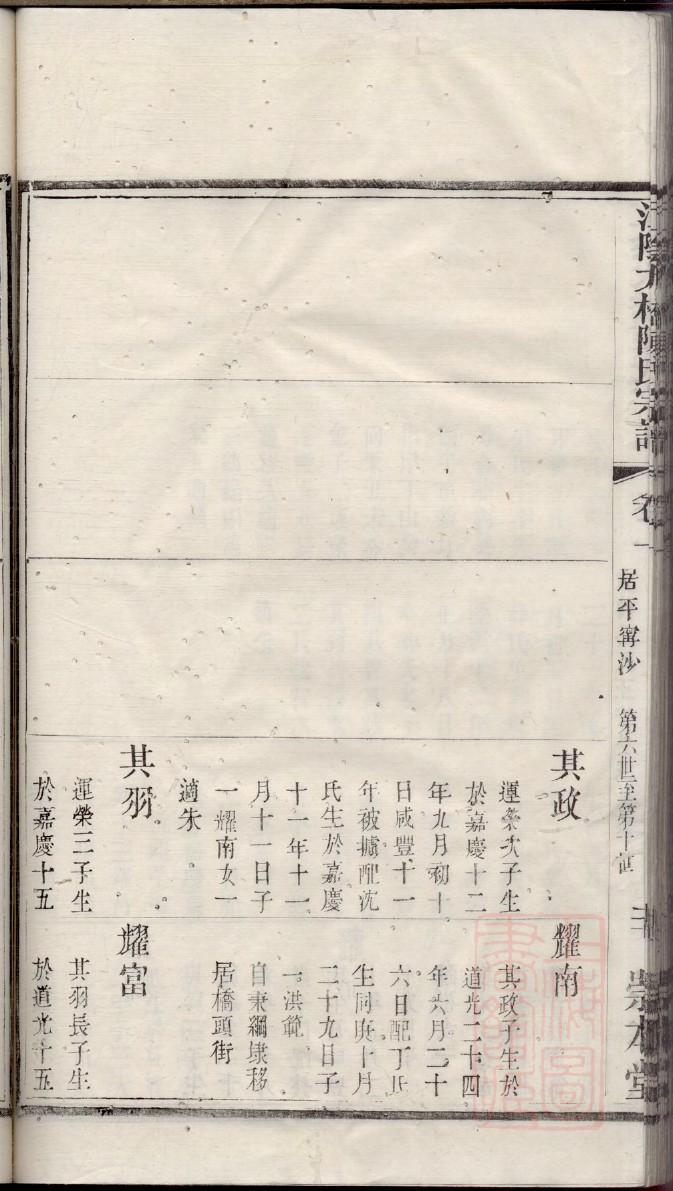 江陰九橋陳氏宗譜
卷一
居平甯沙
第六世至第十世
崇本堂
其政
運榮次子生
於嘉慶十二
年九月初十
日咸豐十一
年被擄配沈
氏生於嘉慶
十一年十一
月十一日子
一耀南女一
適朱
其羽
運榮三子生
於嘉慶十五
耀南
其政子生於
道光二十四
年六月二十
六日配丁氏
生同庚十月
二十九日子
一洪範
自秉綱埭移
居橋頭街
耀富
其羽長子生
於道光十五